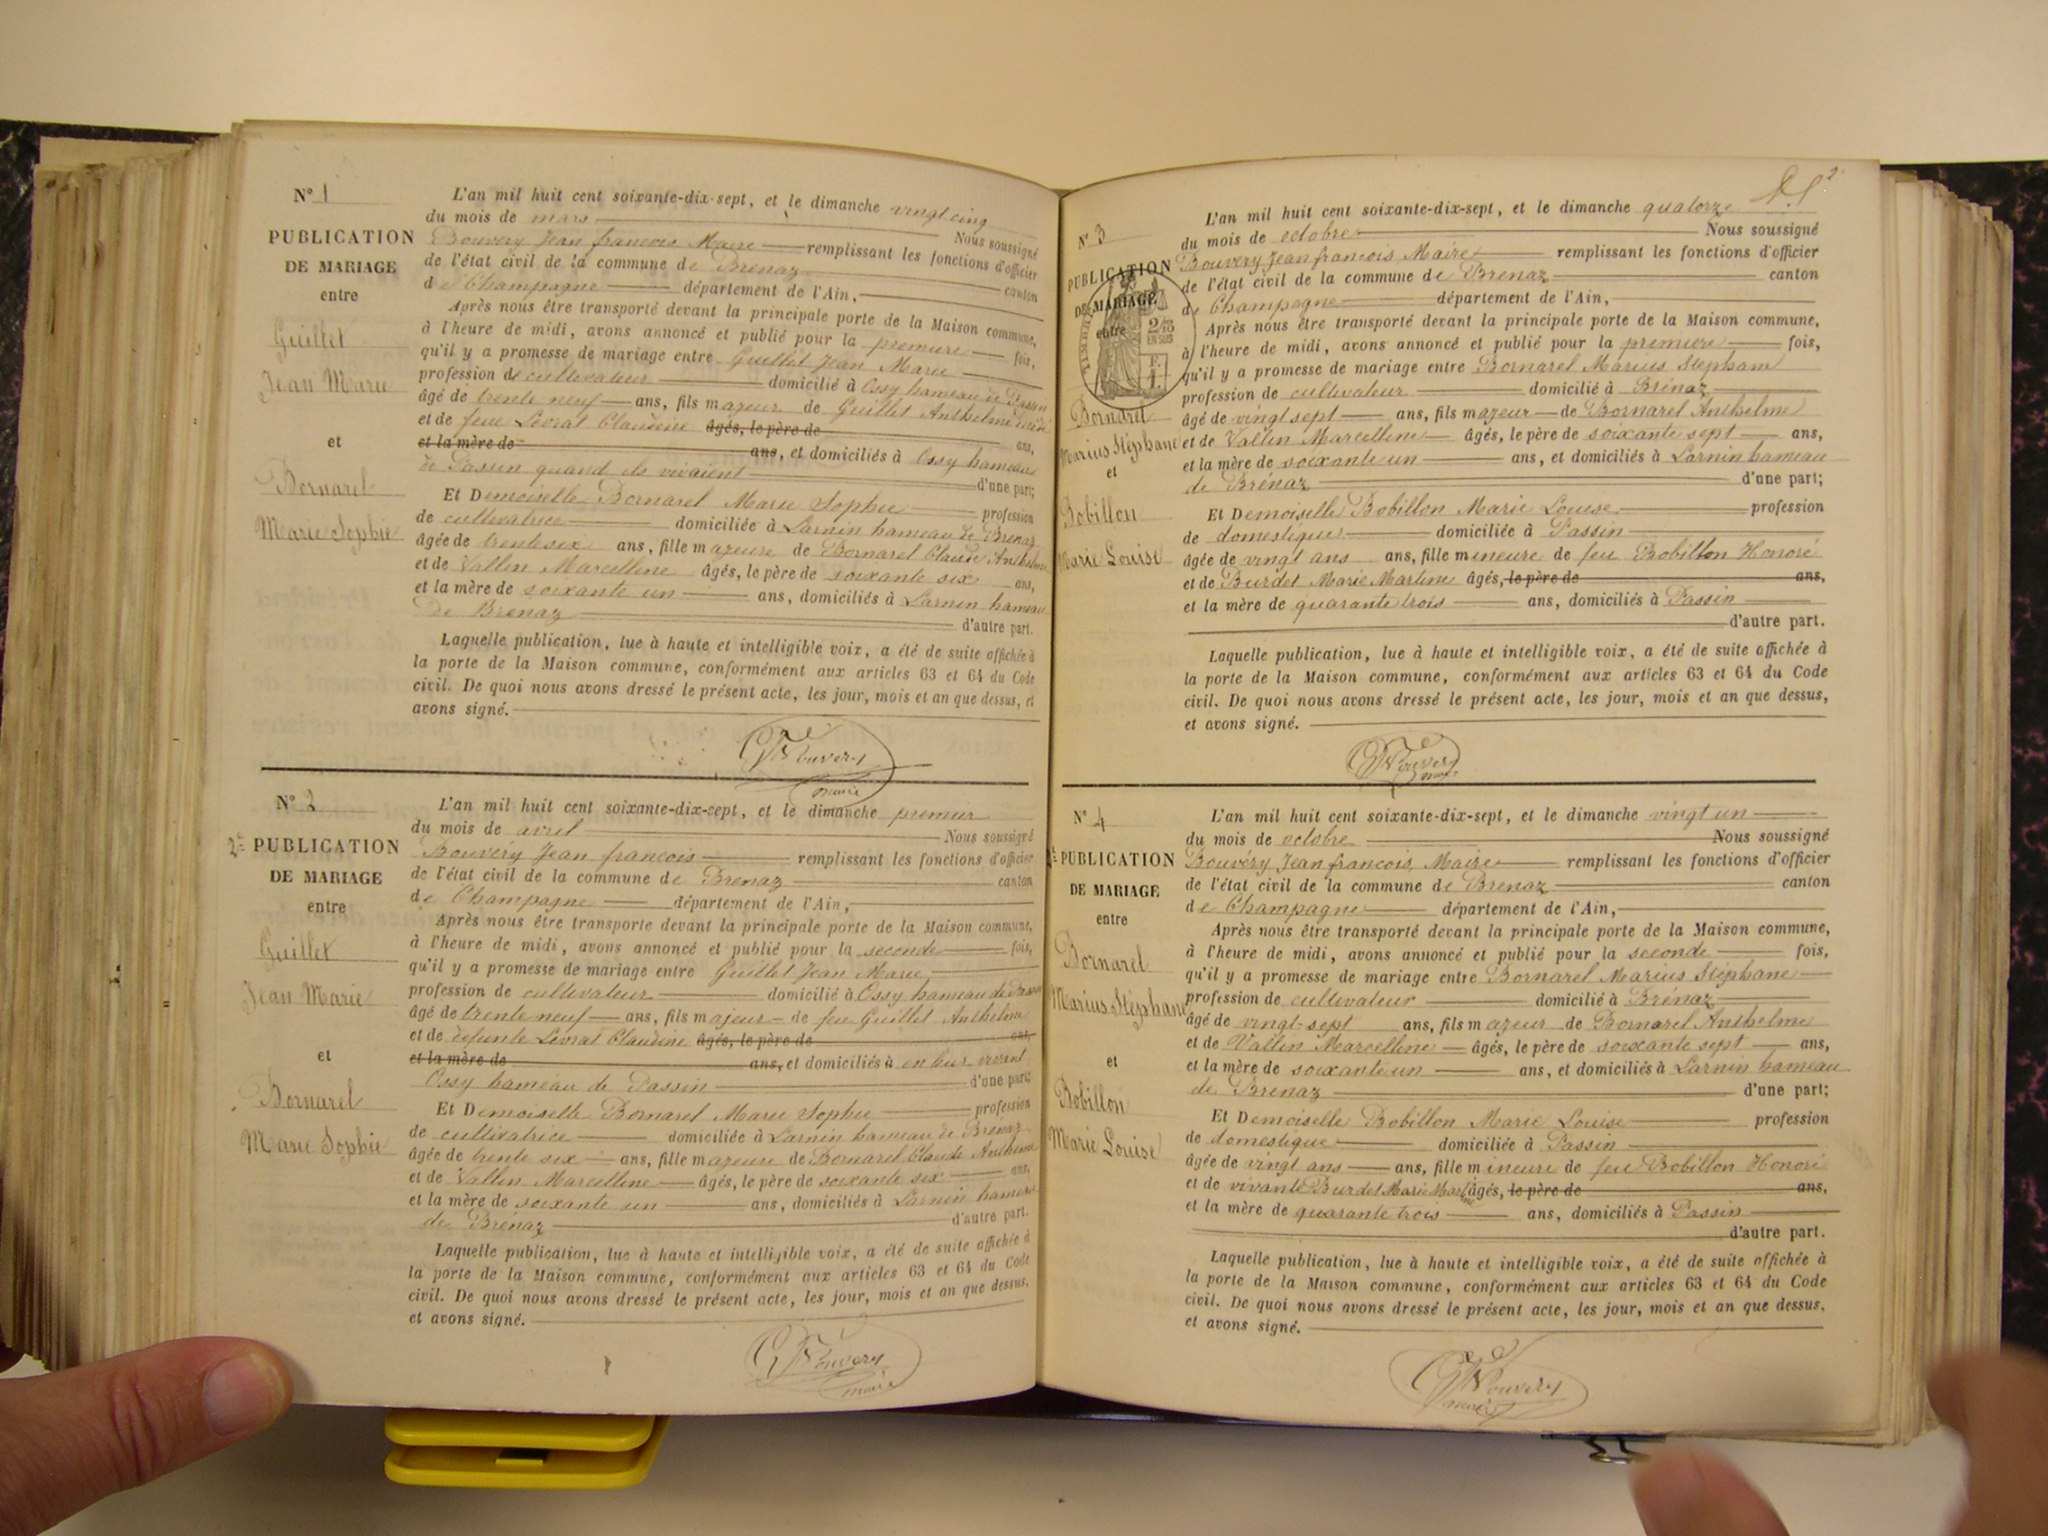 N° 1
PUBLICATION
DE MARIAGE
entre
Guillet
Jean Marie
et
Bornarel
Marie Sophie
L'an mil huit cent soixante-dix-sept, et le dimanche vingt cinq
du mois de mars Nous soussigné
Bouvéry Jean francois Maire remplissant les fonctions d'officier
de l'état civil de la commune de Brenaz canton
de Champagne département de l'Ain,
Après nous être transporté devant la principale porte de la Maison commune,
à l'heure de midi, avons annoncé et publié pour la premiere fois,
qu'il y a promesse de mariage entre Guillet Jean Marie
profession de cultivateur domicilié à Ossy hameau de Passin
âgé de trente neuf ans, fils majeur de Guillet Anthelme
et de feue Levrat Claudine âgés, le père de ans,
et la mère de ans, et domiciliés à Ossy hameau
de Passin quand ils vivaient d'une part;
Et Demoiselle Bornarel Marie Sophie profession
de cultivatrice domiciliée à Larnin hameau de Brenaz
âgée de trente six ans, fille majeure de Bornarel Claude Anthelme
et de Vallin Marcelline âgés, le père de soixante six ans,
et la mère de soixante un ans, domiciliés à Larnin hameau
de Brenaz d'autre part.
Laquelle publication, lue à haute et intelligible voix, a été de suite affichée à
la porte de la Maison commune, conformément aux articles 63 et 64 du Code
civil. De quoi nous avons dressé le présent acte, les jour, mois et an que dessus, et
avons signé.
Bouvery
maire
N° 2
2e PUBLICATION
DE MARIAGE
entre
Guillet
Jean Marie
et
Bornarel
Marie Sophie
L'an mil huit cent soixante-dix-sept, et le dimanche premier
du mois de avril Nous soussigné
Bouvéry Jean francois remplissant les fonctions d'officier
de l'état civil de la commune de Brenaz canton
de Champagne département de l'Ain,
Après nous être transporte devant la principale porte de la Maison commune,
à l'heure de midi, avons annoncé et publié pour la seconde fois,
qu'il y a promesse de mariage entre Guillet Jean Marie
profession de cultivateur domicilié à Ossy hameau de Passin
âgé de trente neuf ans, fils majeur de feu Guillet Anthelme
et de défunte Levrat Claudine âgés, le père de ans,
et la mère de ans, et domiciliés à en leur vivant
Ossy hameau de Passin d'une part;
Et Demoiselle Bornarel Marie Sophie profession
de cultivatrice domiciliée à Larnin hameau de Brenaz
âgée de trente six ans, fille majeure de Bornarel Claude Anthelme
et de Vallin Marcelline âgés, le père de soixante six ans,
et la mère de soixante un ans, domiciliés à Larnin hameau
de Brénaz d'autre part.
Laquelle publication, lue à haute et intelligible voix, a été de suite affichée à
la porte de la Maison commune, conformément aux articles 63 et 64 du Code
civil. De quoi nous avons dressé le présent acte, les jour, mois et an que dessus,
et avons signé.
Bouvery
maire
N° 3
PUBLICATION
DE MARIAGE
entre
Bornarel
Marius Stéphane
et
Bobillon
Marie Louise
L'an mil huit cent soixante-dix-sept, et le dimanche quatorze
du mois de octobre Nous soussigné
Bouvéry Jean francois Maire remplissant les fonctions d'officier
de l'état civil de la commune de Brenaz canton
de Champagne département de l'Ain,
Après nous être transporté devant la principale porte de la Maison commune,
à l'heure de midi, avons annoncé et publié pour la premiere fois,
qu'il y a promesse de mariage entre Bornarel Marius Stephane
profession de cultivateur domicilié à Brénaz
âgé de vingt sept ans, fils majeur de Bornarel Anthelme
et de Vallin Marcelline âgés, le père de soixante sept ans,
et la mère de soixante un ans, et domiciliés à Larnin hameau
de Brénaz d'une part;
Et Demoiselle Bobillon Marie Louise profession
de domestique domiciliée à Passin
âgée de vingt ans ans, fille mineure de feu Bobillon Honoré
et de Burdet Marie Martine âgés, le père de ans,
et la mère de quarante trois ans, domiciliés à Passin
d'autre part.
Laquelle publication, lue à haute et intelligible voix, a été de suite affichée à
la porte de la Maison commune, conformément aux articles 63 et 64 du Code
civil. De quoi nous avons dressé le présent acte, les jour, mois et an que dessus,
et avons signé.
Bouvery
maire
N° 4
2e PUBLICATION
DE MARIAGE
entre
Bornarel
Marius Stéphane
et
Bobillon
Marie Louise
L'an mil huit cent soixante-dix-sept, et le dimanche vingt un
du mois de octobre Nous soussigné
Bouvéry Jean francois, Maire remplissant les fonctions d'officier
de l'état civil de la commune de Brenaz canton
de Champagne département de l'Ain,
Après nous être transporté devant la principale porte de la Maison commune,
à l'heure de midi, avons annoncé et publié pour la seconde fois,
qu'il y a promesse de mariage entre Bornarel Marius Stéphane
profession de cultivateur domicilié à Brénaz
âgé de vingt-sept ans, fils majeur de Bornarel Anthelme
et de Vallin Marcelline âgés, le père de soixante sept ans,
et la mère de soixante un ans, et domiciliés à Larnin hameau
de Brenaz d'une part;
Et Demoiselle Bobillon Marie Louise profession
de domestique domiciliée à Passin
âgée de vingt ans ans, fille mineure de feu Bobillon Honoré
et de vivante Burdet Marie Martine âgés, le père de ans,
et la mère de quarante trois ans, domiciliés à Passin
d'autre part.
Laquelle publication, lue à haute et intelligible voix, a été de suite affichée à
la porte de la Maison commune, conformément aux articles 63 et 64 du Code
civil. De quoi nous avons dressé le présent acte, les jour, mois et an que dessus,
et avons signé.
Bouvery
maire